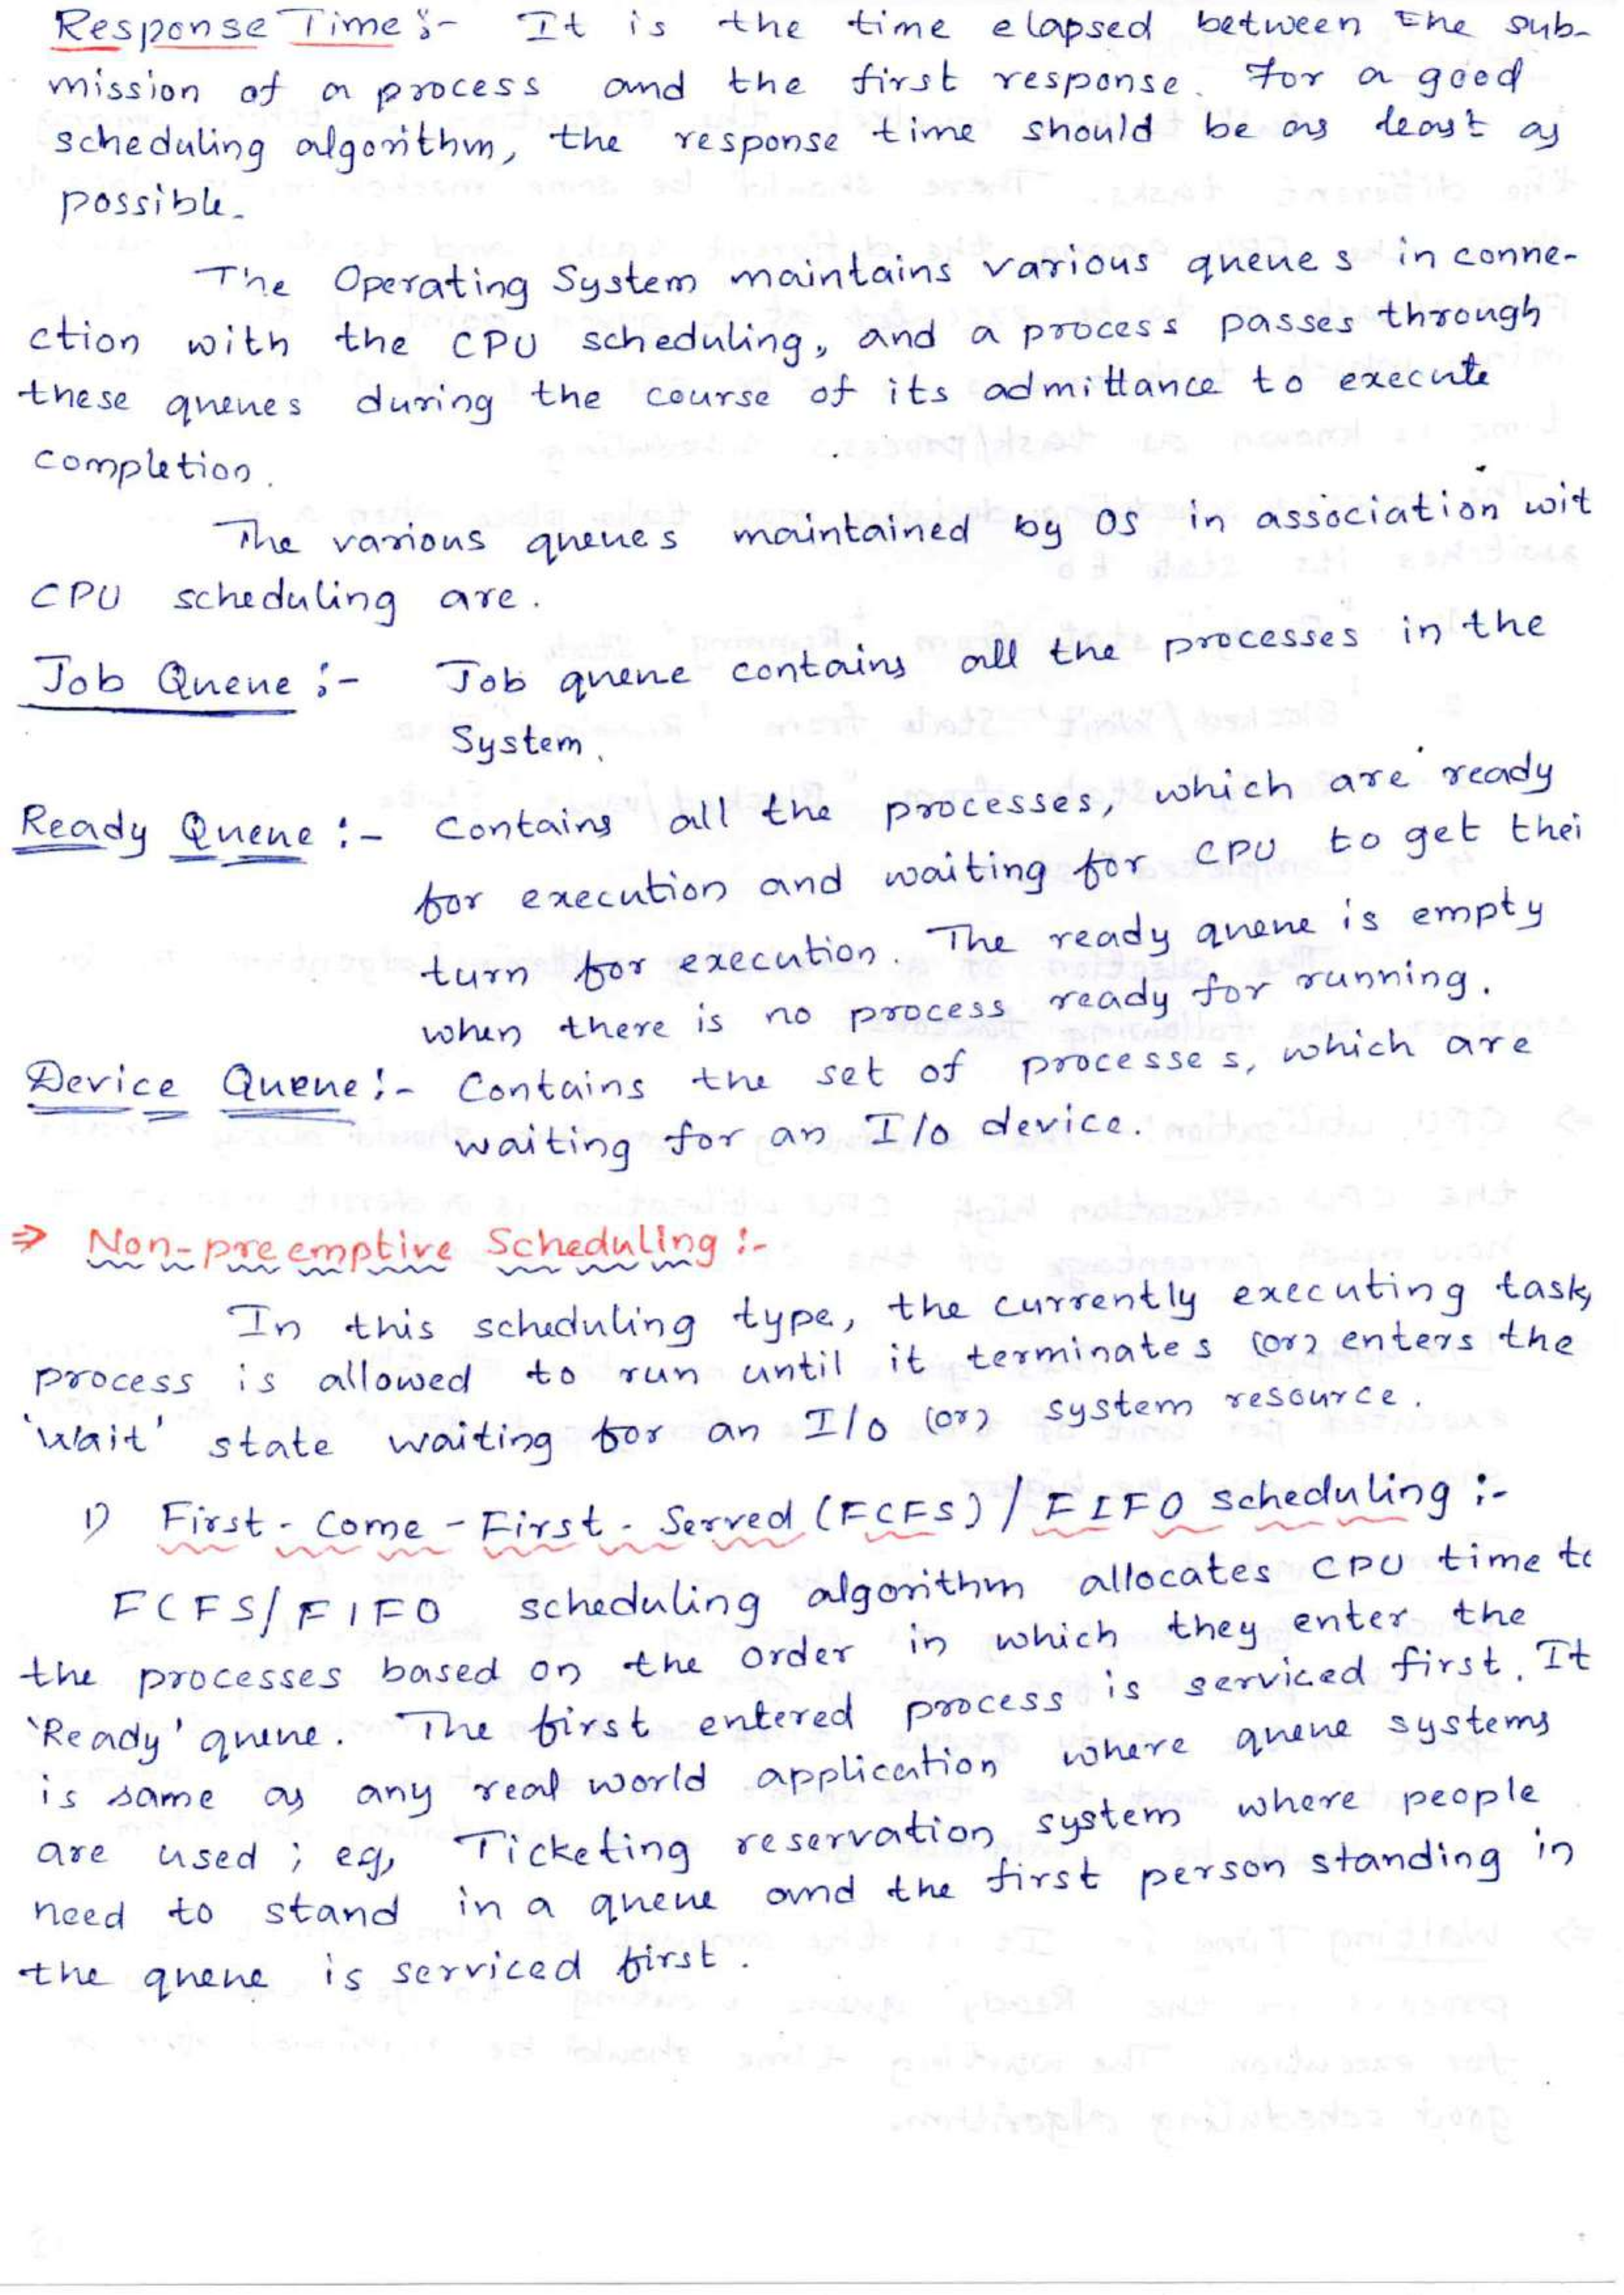 Response Time :- It is the time elapsed between the sub-
mission of a process and the first response. For a good
scheduling algorithm, the response time should be as least as
possible.
The Operating System maintains various queues in conne-
ction with the CPU scheduling, and a process passes through
these queues during the course of its admittance to execute
completion.
The various queues maintained by OS in association wit
CPU scheduling are.
Job Queue :- Job queue contains all the processes in the
System.
Ready Queue :- Contains all the processes, which are ready
for execution and waiting for CPU to get thei
turn for execution. The ready queue is empty
when there is no process ready for running.
Device Queue :- Contains the set of processes, which are
waiting for an I/O device.
⇒ Non-preemptive Scheduling :-
In this scheduling type, the currently executing task,
process is allowed to run until it terminates (or) enters the
'Wait' state waiting for an I/O (or) system resource.
1) First-Come-First-Served (FCFS) / FIFO scheduling :-
FCFS/FIFO scheduling algorithm allocates CPU time to
the processes based on the order in which they enter the
'Ready' queue. The first entered process is serviced first. It
is same as any real world application where queue systems
are used ; eg, Ticketing reservation system where people
need to stand in a queue and the first person standing in
the queue is serviced first.